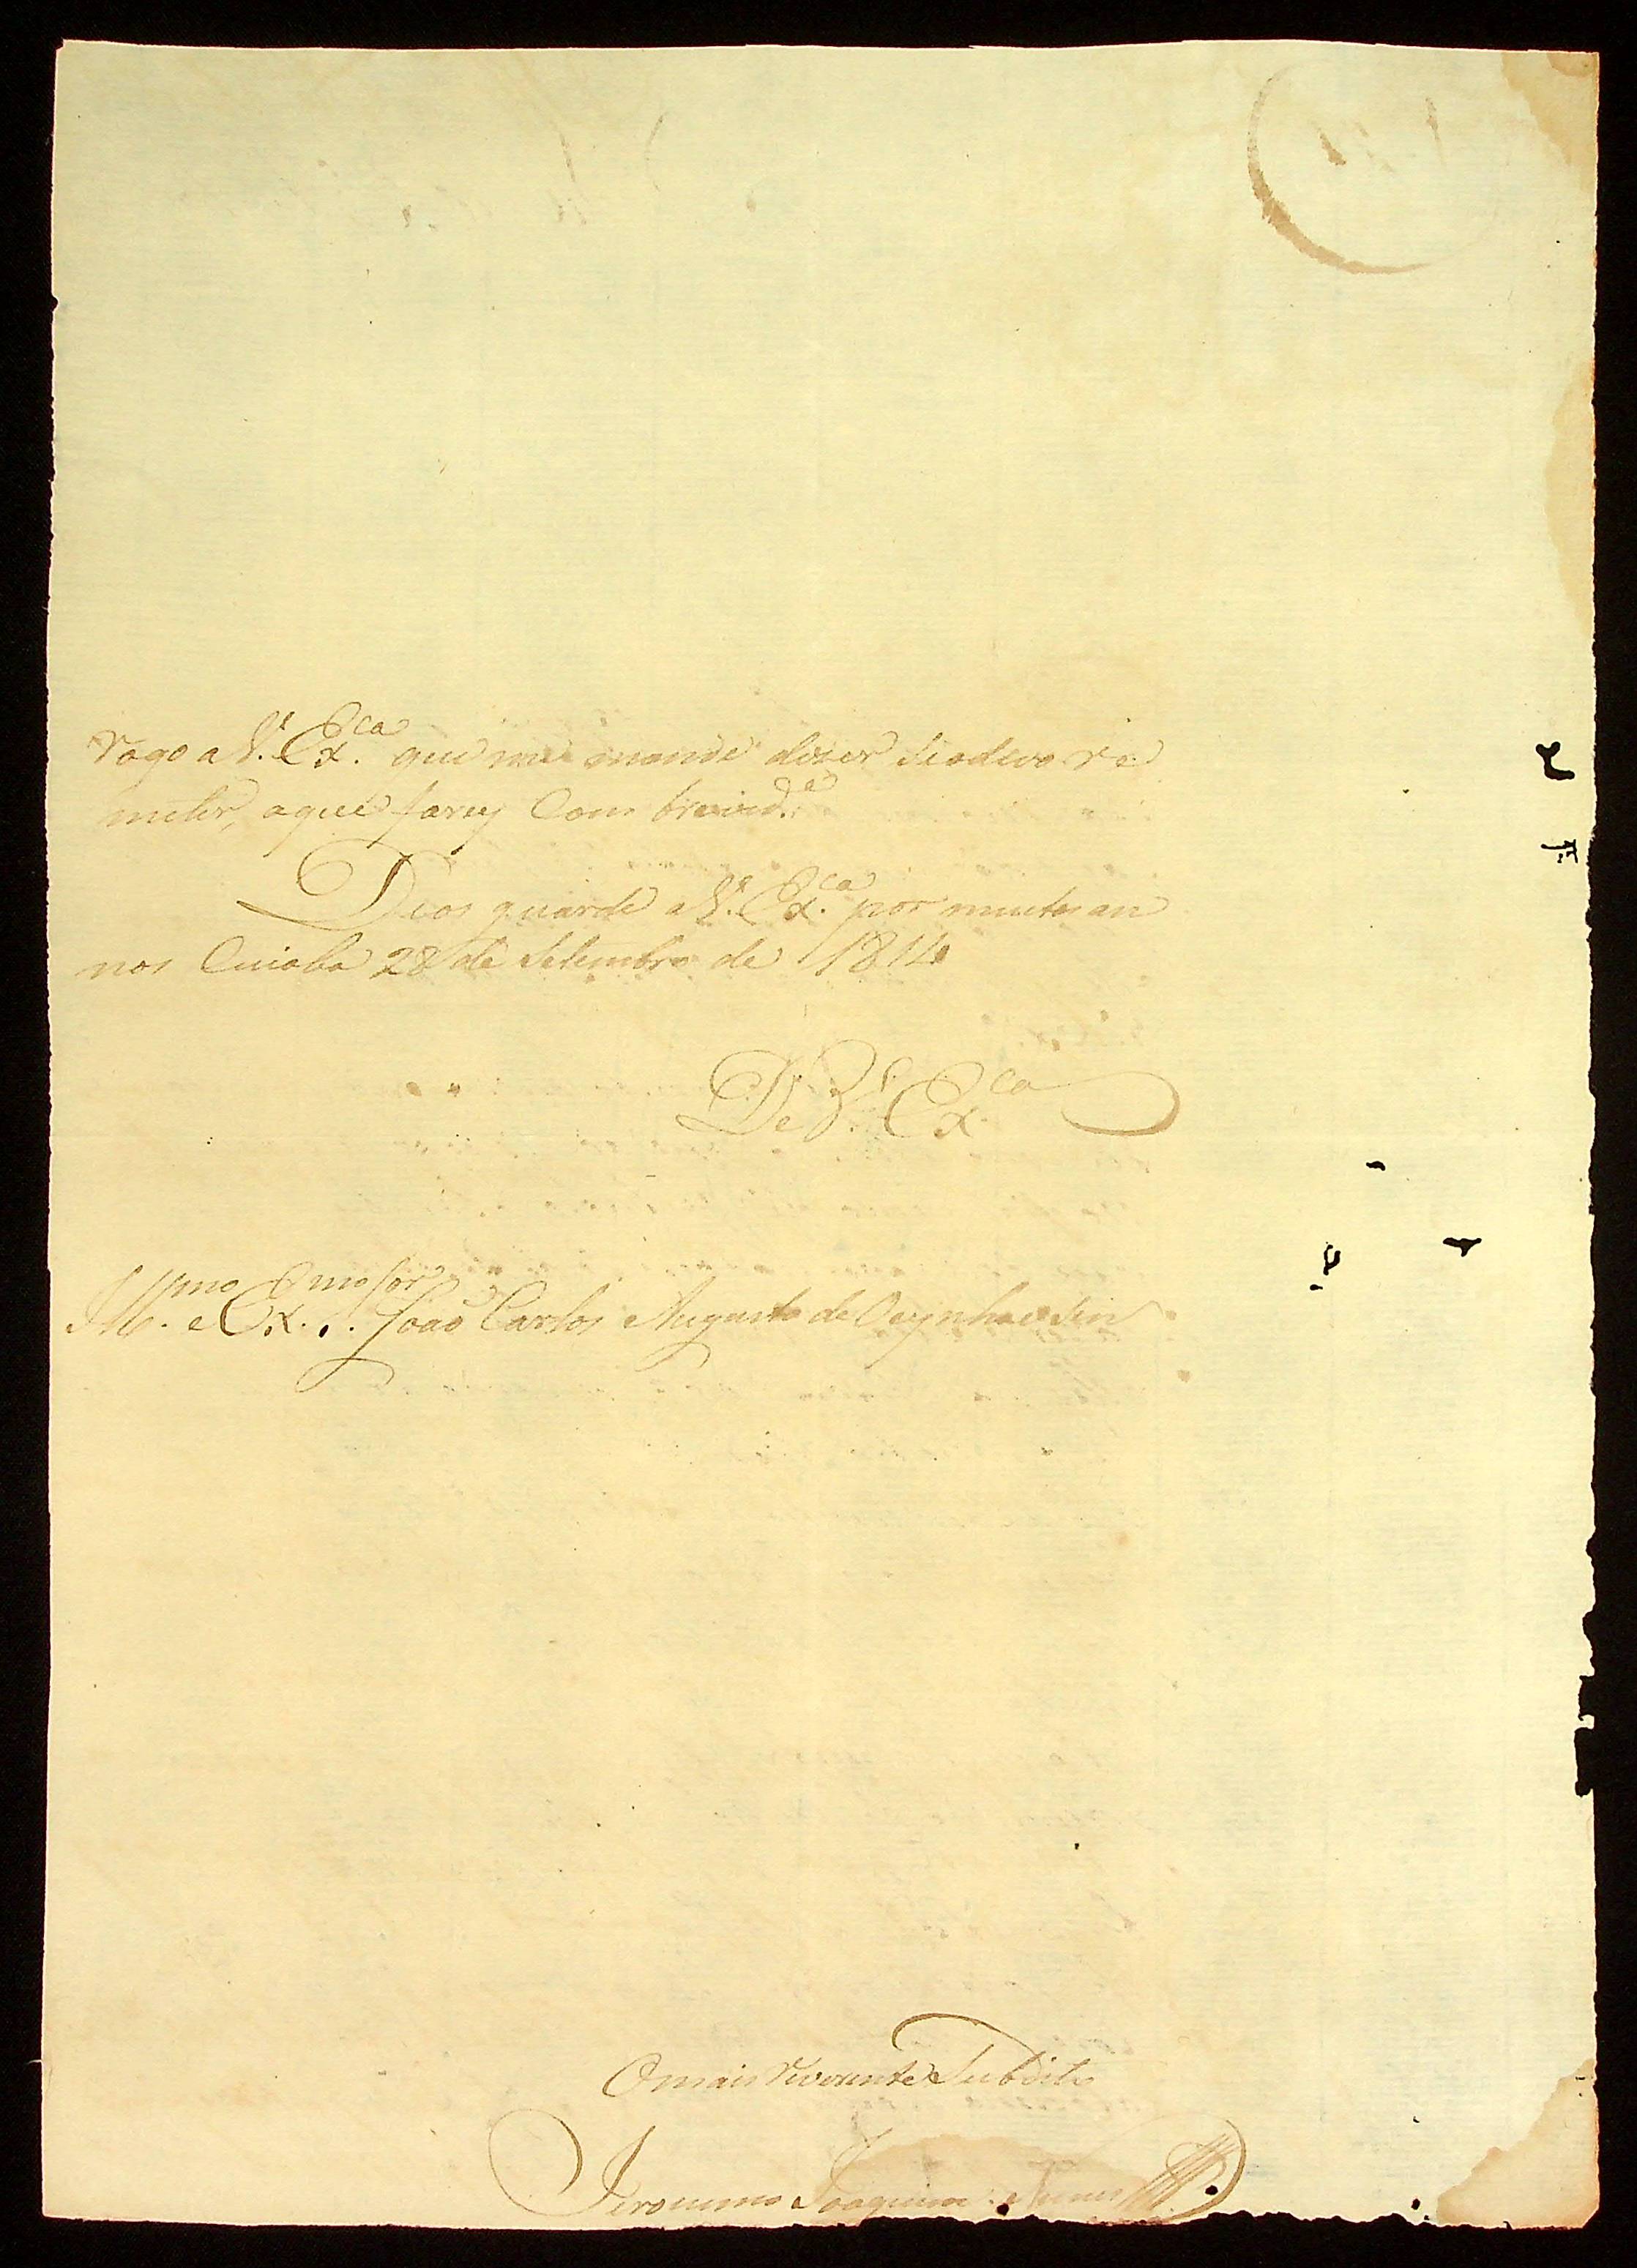 rogo a V.ª Ex.ca que me mande dizer se o devo re
meter, aque farey Com brevid.e
Deos guarde a V.ª Ex.ca por muitos an
nos Cuiaba 28 de Setembro de 1814
De V.ª Ex.ca
Ill.mo e Ex.mo Sor. João Carlos Augusto de Oeynhausen
O mais reverente Subdito
Jeronimo Joaquim Nunes